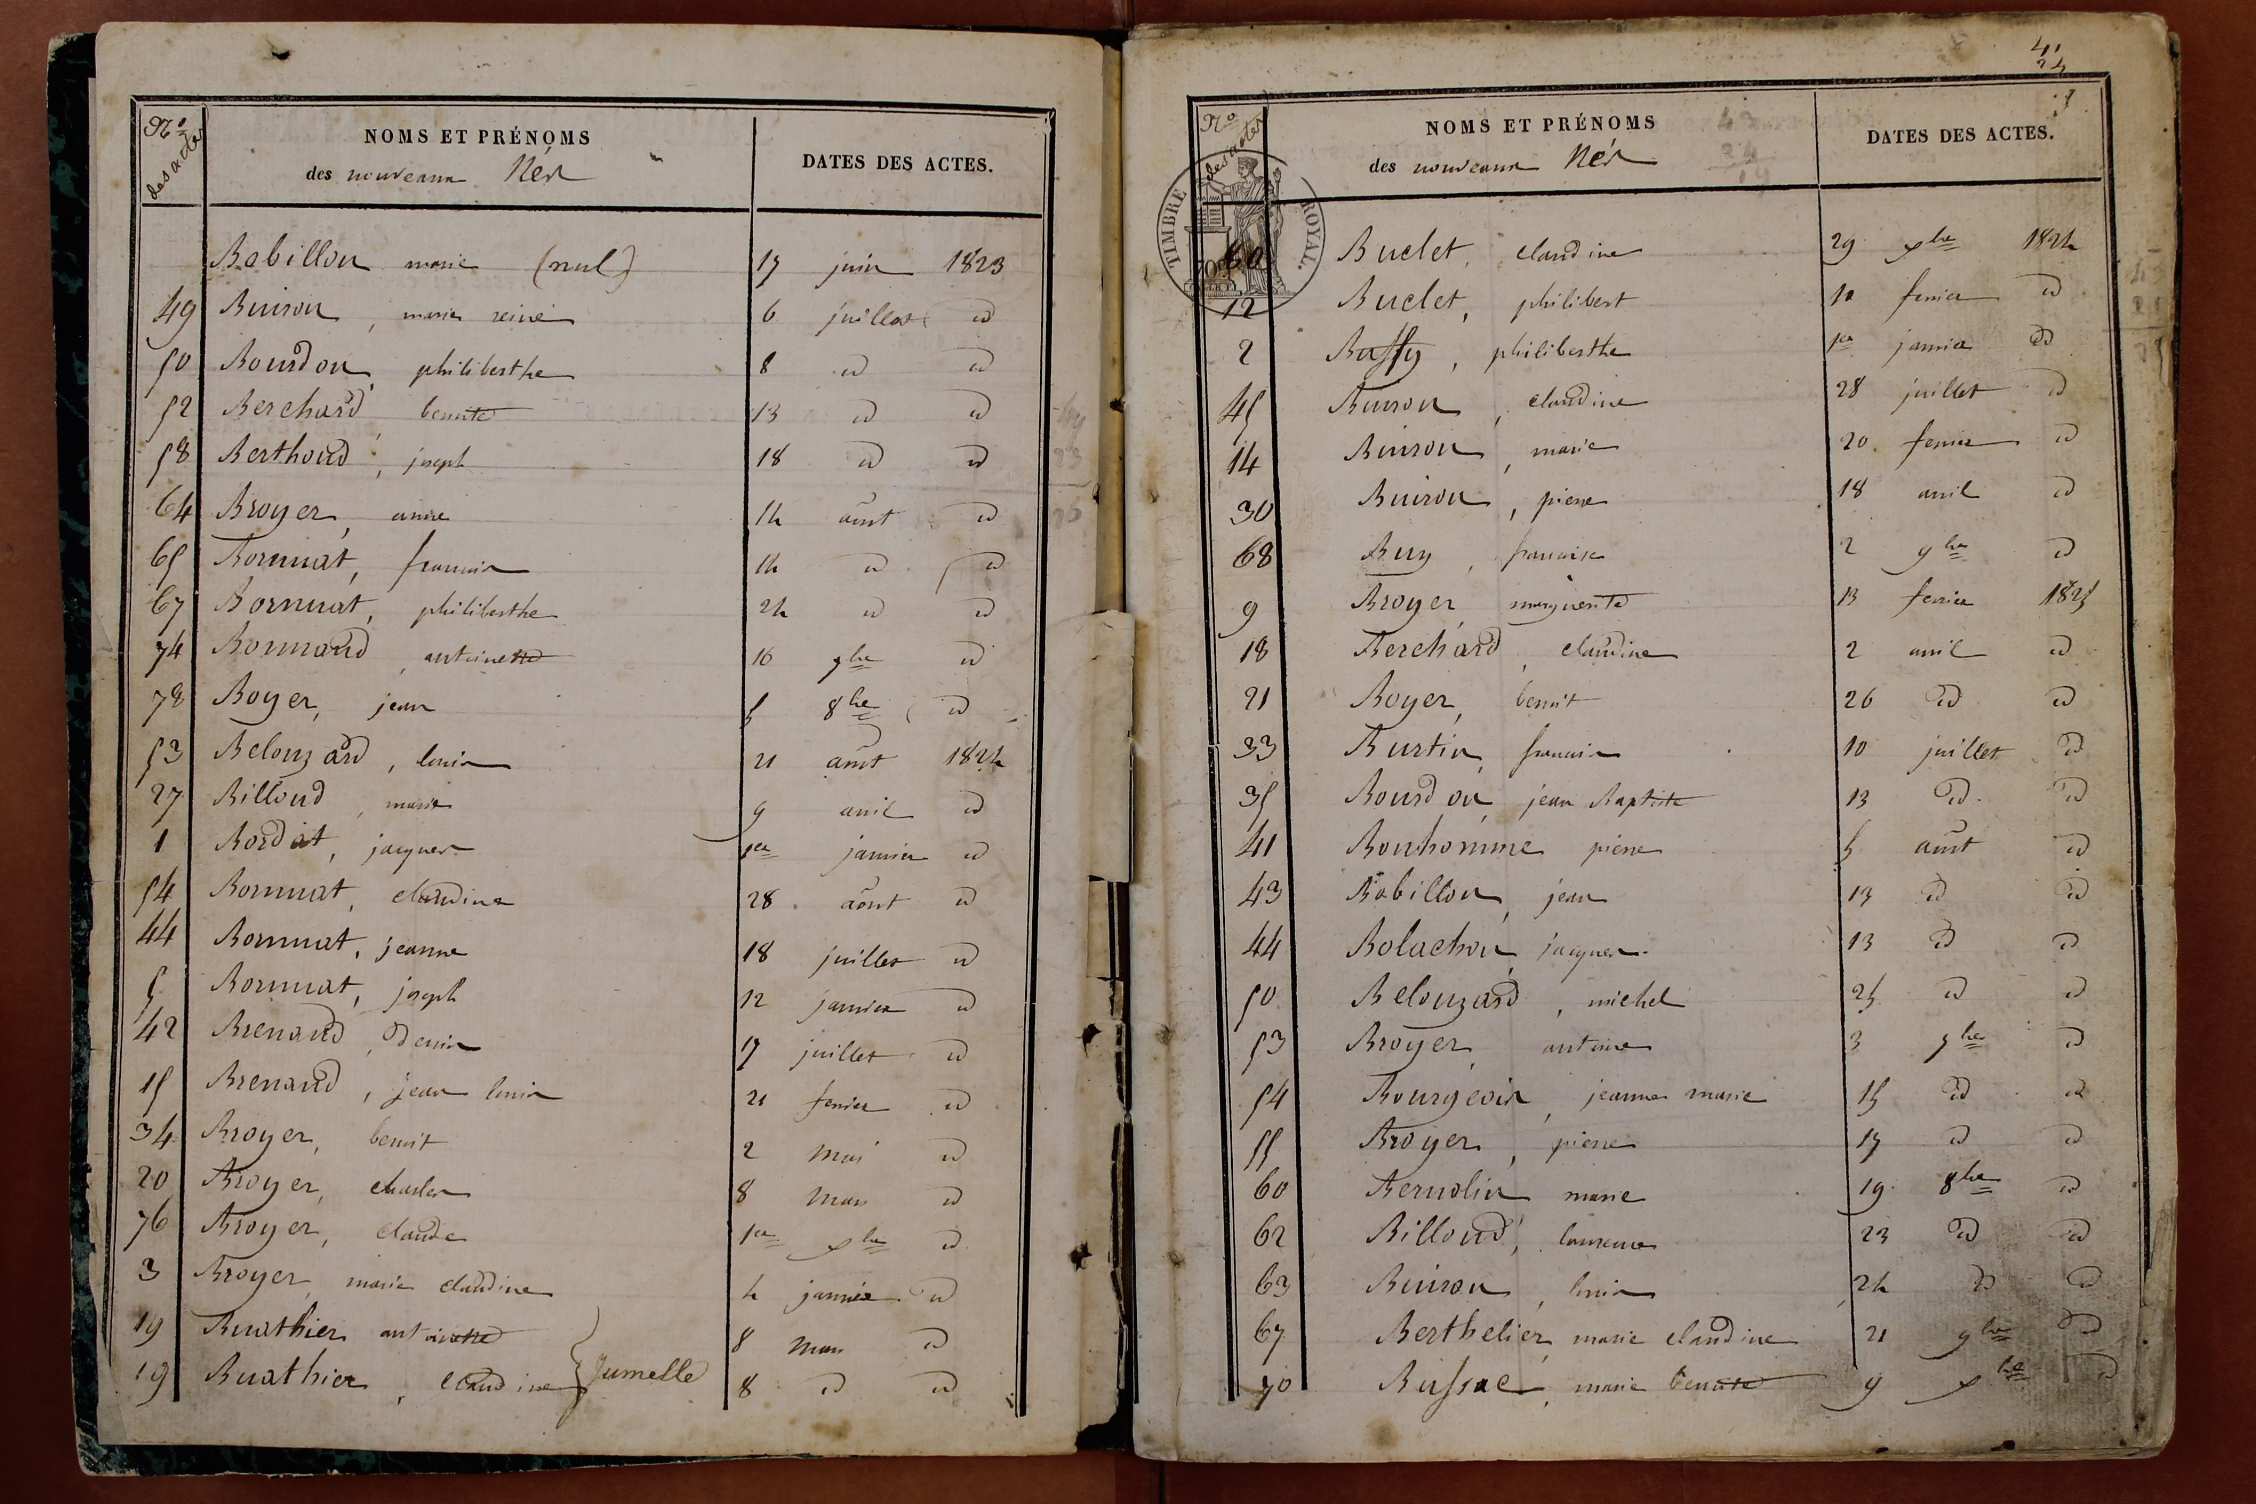 Nos des actes
NOMS ET PRÉNOMS
des nouveaux Nés
DATES DES ACTES.
Babillon marie (nul) 17 juin 1823
49 Buiron, marie reine 6 juillet id
50 Bourdon, philiberthe 8 id id
52 Berchard benoite 13 id id
58 Berthoud, joseph 18 id id
64 Broyer, anne 14 aout id
65 Bornuat, francois 14 id id
67 Bornuat, philiberthe 24 id id
74 Bonnand, antoinette 16 7bre id
78 Boyer, jean 5 8bre id
53 Belouzard, louis 21 aout 1824
27 Billoud, marie 9 avril id
1 Bordat, jacques 1er janvier id
54 Bornuat, claudine 28 aout id
44 Bornuat, jeanne 18 juillet id
5 Bornuat, joseph 12 janvier id
42 Brenaud, Denis 17 juillet id
15 Brenaud, jean louis 21 fevrier id
34 Broyer, benoit 2 mai id
20 Broyer, charles 8 mars id
76 Broyer, claude 1er xbre id
3 Broyer, marie claudine 4 janvier id
19 Buathier antoinette 8 mars id
19 Buathier, claudine } Jumelle 8 id id
Nos des actes
NOMS ET PRÉNOMS
des nouveaux Nés
DATES DES ACTES.
TIMBRE ROYAL.
60 Buclet, claudine 29 xbre 1824
12 Buclet, philibert 10 fevrier id
2 Bussy, philiberthe 1er janvier id
45 Buiron, claudine 28 juillet id
14 Buiron, marie 20 fevrier id
30 Buiron, pierre 18 avril id
68 Buy, francoise 2 9bre id
9 Broyer marguerite 13 fevrier 1825
18 Berchard, claudine 2 avril id
21 Boyer, benoit 26 id id
33 Burtin, francois 10 juillet id
35 Bourdon, jean Baptiste 13 id id
41 Bonhomme pierre 5 aout id
43 Babillon, jean 13 id id
44 Bolachon, jacques 13 id id
50 Belouzard, michel 25 id id
53 Broyer, antoine 3 7bre id
54 Bourgeois, jeanne marie 15 id id
55 Broyer, pierre 17 id id
60 Bernolin marie 19 8bre id
62 Billoud, laurence 23 id id
63 Buiron, louis 24 id id
67 Berthelier, marie claudine 21 9bre id
70 Bussac, marie benoite 9 xbre id